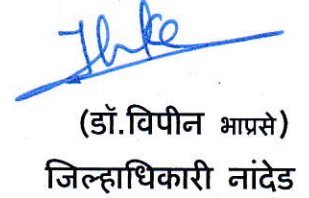 (डॉ.विपीन भाप्रसे)
जिल्हाधिकारी नांदेड